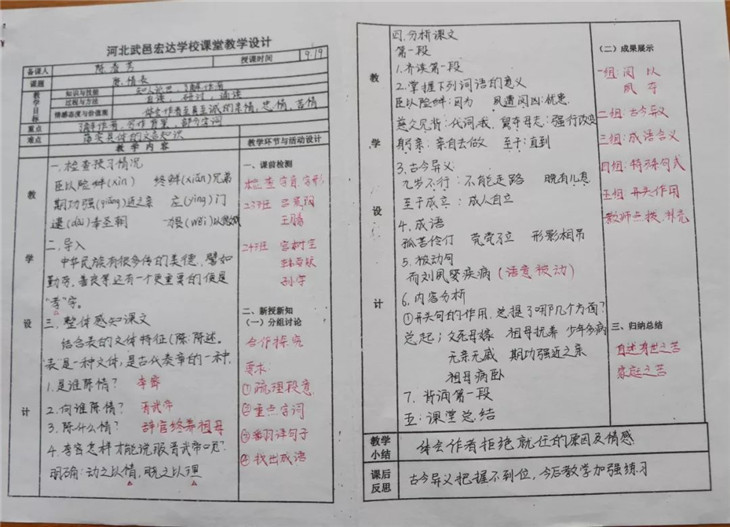 河北武邑宏达学校课堂教学设计
备课人
授课时间 9.19
课题 陈情表
教学目标
知识与技能
过程与方法
情感态度与价值观
重点
难点
教学内容
教学环节与活动设计
教学设计
一.检查预习情况
臣以险衅(xìn) 终鲜(xiǎn)兄弟
期功强(qiǎng)近之亲 应(yīng)门
逮(dài)奉圣朝
二.导入
中华民族有很多传统美德,譬如
勤劳、善良等还有一个更重要的便是
“孝”字。
三.整体感知课文
结合表的文体特征(陈:陈述。
表是一种文体,是古代表章的一种.
1.是谁陈情? 李密
2.向谁陈情? 晋武帝
3.陈什么情? 辞官终养祖母
4.李密怎样才能说服晋武帝呢?
明确:动之以情,晓之以理
一、课前检测
检查字音字形
233班
王鹏
243班
二、新授新知
(一)分组讨论
合作探究
要求:
①疏理段意
②重点字词
③翻译句子
④找出成语
教学设计
四.分析课文
第一段
1.齐读第一段
2.掌握下列词语的意义
臣以险衅:因为 夙遭闵凶:忧患.
慈父见背:代词,我. 舅夺母志:强行改变
躬亲:亲自去做 至于:直到
3.古今异义:
九岁不行:不能走路
至于成立:成人自立
4.成语
孤苦伶仃 茕茕孑立 形影相吊
5.被动句
而刘夙婴疾病(语意被动)
6.内容分析
①开头句的作用.总提了哪几个方面?
总起;父死母嫁 祖母抚养 少年多病
无亲无戚 期功强近之亲
祖母病卧
7.背诵第一段
五:课堂总结
(二)成果展示
一组:闵 以
夙
二组:古今异义
三组:成语含义
四组:特殊句式
五组:开头作用
教师点拨,补充
三、归纳总结
自述身世之苦
家庭之苦
教学小结
体会作者拒绝就任的原因及情感
课后反思
古今异义把握不到位,今后教学加强练习